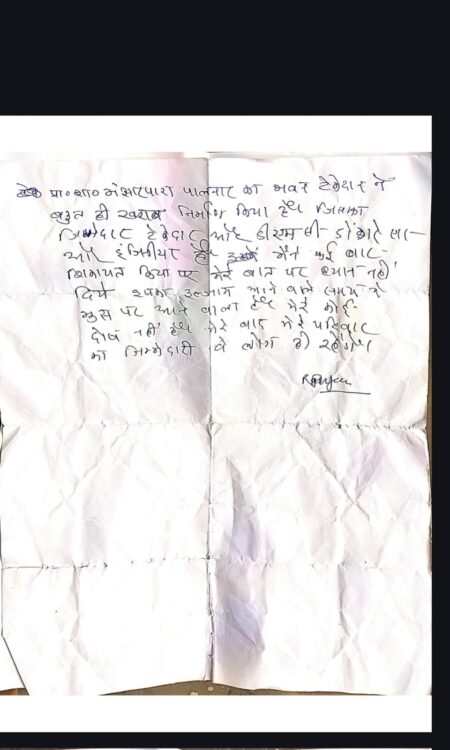 प्रा० शा० मंझारपारा पालनार का भवन ठेकेदार ने
बहुत ही खराब निर्माण किया है। जिसका
जिम्मेदार ठेकेदार और डी एम सी
और इंजीनियर है। मैंने कई बार
शिकायत किया पर मेरे बात पर ध्यान नहीं
दिये इसका इल्जाम आने वाले समय में
मुझ पर आने वाला है। मेरे कोई
दोष नहीं है। मेरे बाद मेरे परिवार
का जिम्मेदारी वे लोग ही रहेंगे।